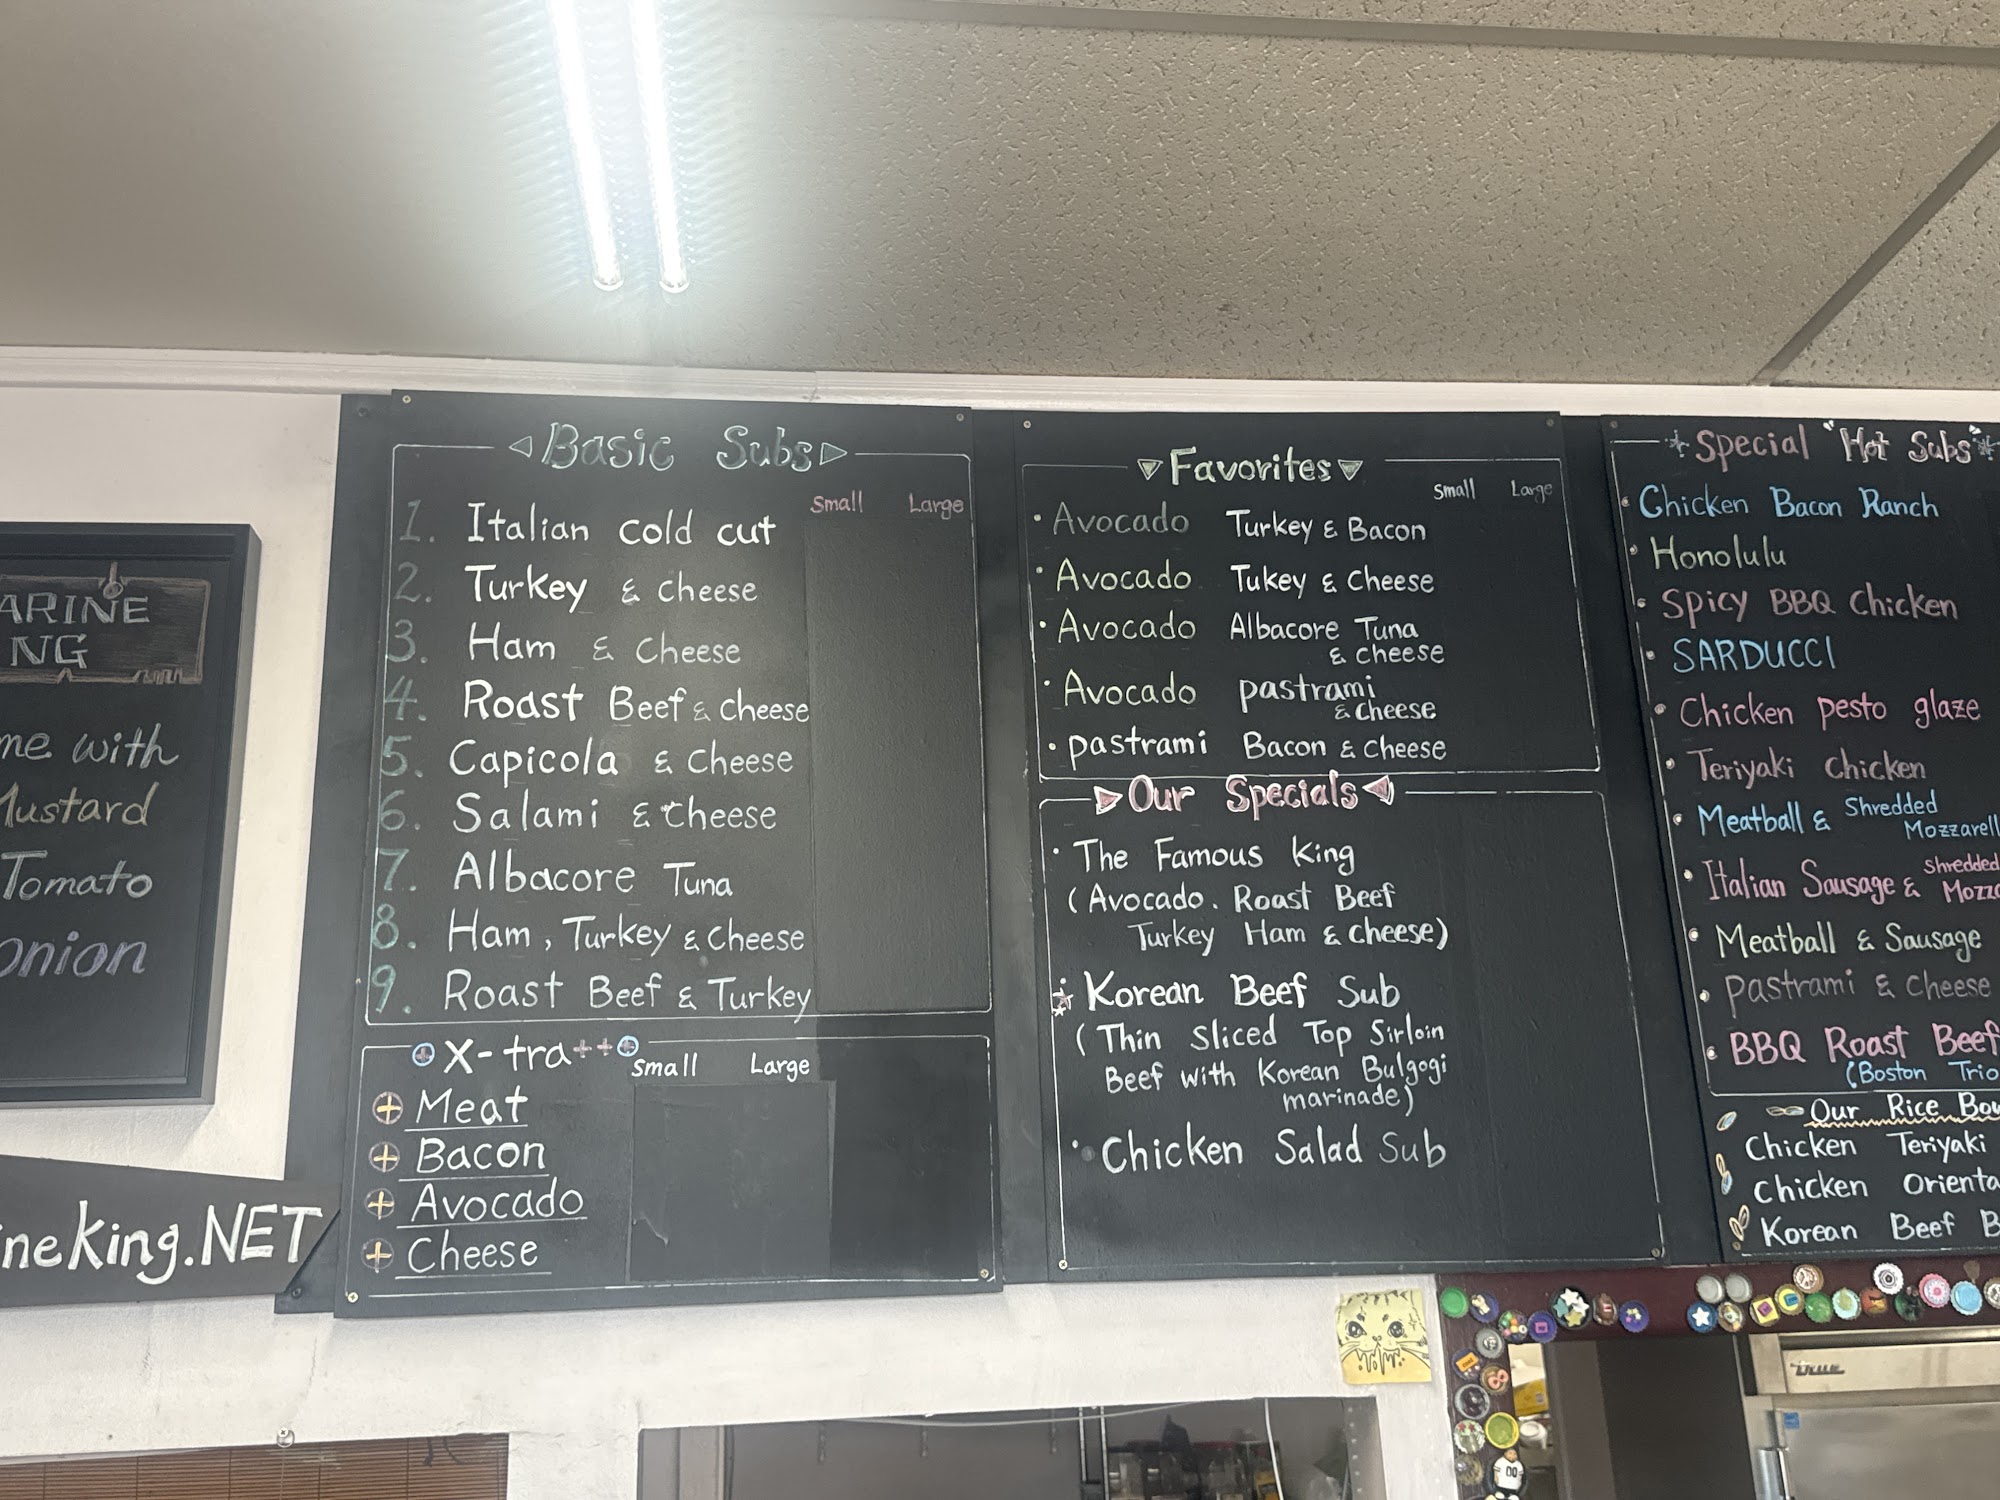 ARINE
NG
me with
Mustard
Tomato
Onion
ineking.NET
Basic Subs
Small Large
1. Italian cold cut
2. Turkey & cheese
3. Ham & cheese
4. Roast Beef & cheese
5. Capicola & cheese
6. Salami & cheese
7. Albacore Tuna
8. Ham, Turkey & cheese
9. Roast Beef & Turkey
X-tra++
Small Large
+ Meat
+ Bacon
+ Avocado
+ Cheese
Favorites
Small Large
· Avocado Turkey & Bacon
· Avocado Tukey & Cheese
· Avocado Albacore Tuna
& cheese
· Avocado pastrami
& cheese
· pastrami Bacon & cheese
Our Specials
· The Famous King
(Avocado. Roast Beef
Turkey Ham & cheese)
Korean Beef Sub
(Thin Sliced Top Sirloin
Beef with Korean Bulgogi
marinade)
· Chicken Salad Sub
Special "Hot Subs"
· Chicken Bacon Ranch
· Honolulu
· Spicy BBQ Chicken
· SARDUCCI
· Chicken pesto glaze
· Teriyaki Chicken
· Meatball & Shredded
Mozzarell
· Italian Sausage & Shredded
Mozz
· Meatball & Sausage
· Pastrami & Cheese
· BBQ Roast Beef
(Boston Trio
Our Rice Bow
Chicken Teriyaki
Chicken Orienta
Korean Beef B
True
00